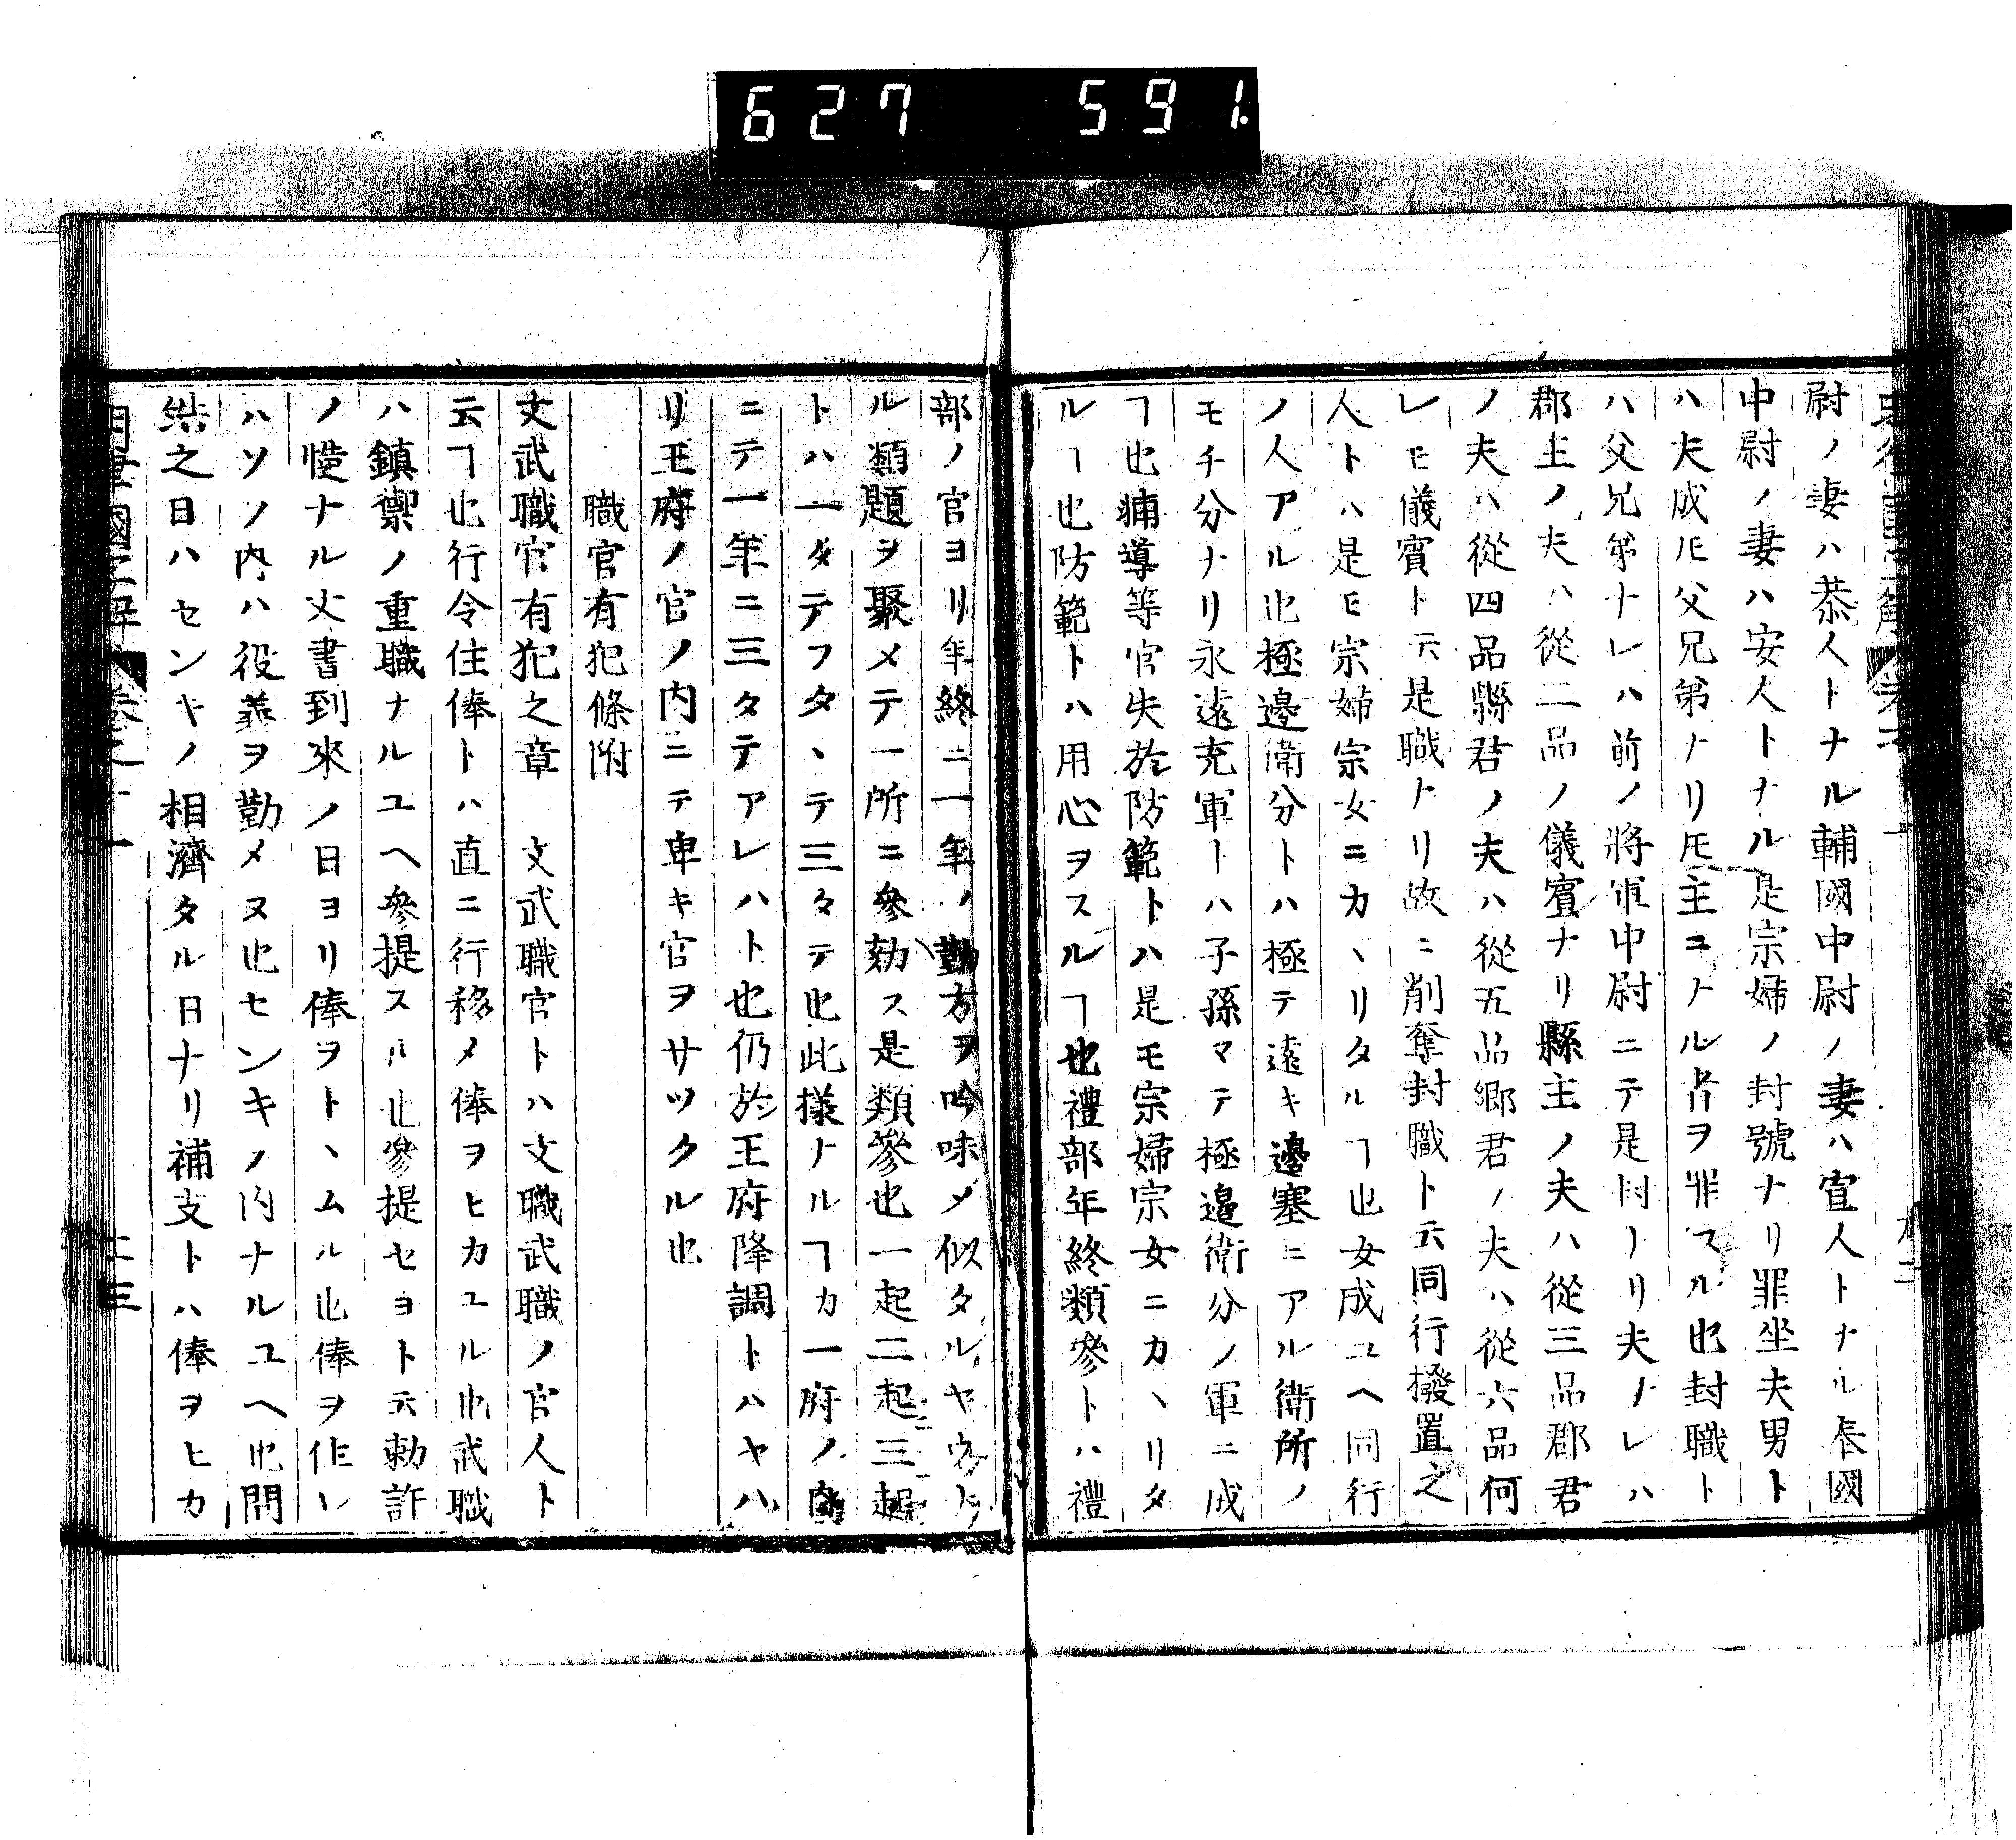 627 591
尉ノ妻ハ恭人トナル輔國中尉ノ妻ハ宜人トナル奉國
中尉ノ妻ハ安人トナル是宗婦ノ封號ナリ罪坐夫男ト
ハ夫成ヒ父兄第ナリ𪜈主ニナル者ヲ罪スル也封職ト
ハ父兄弟ナレハ前ノ將軍中尉ニテ是同ーリ夫ナレハ
郡主ノ夫ハ從二品ノ儀賓ナリ縣主ノ夫ハ從三品郡君
ノ夫ハ從四品縣君ノ夫ハ從五品郷君ノ夫ハ從六品何
レモ儀賓ト云是職ナリ故ニ削奪封職ト云同行撥置之
人トハ是モ宗婦宗女ニカヽリタルヿ也女成ユヘ同行
ノ人アル也極邊衛分トハ極テ遠キ邊塞ニアル衛所ノ
モチ分ナリ永遠充軍トハ子孫マテ極邊衛分ノ軍ニ成
ヿ也輔導等官失於防範トハ是モ宗婦宗女ニカヽリタ
ルヿ也防範トハ用心ヲスルヿ也禮部年終類參トハ禮
部ノ官ヨリ年終ニ一年ノ勤方ヲ吟味メ似タルヤウナ
ル類題ヲ聚メテ一所ニ參劾ス是類參也一起二起三起
トハ一タテフタヽテ三タテ也此樣ナルヿカ一府ノ内
ニテ一年ニ三タテアレハト也仍於王府降調トハヤハ
リ王府ノ官ノ内ニテ卑キ官ヲサツクル也
職官有犯條附
文武職官有犯之章　文武職官トハ文職武職ノ官人ト
云ヿ也行令住俸トハ直ニ行移メ俸ヲヒカユル也武職
ハ鎮禦ノ重職ナルユヘ參提スル也參提セヨト云勅許
ノ慥ナル文書到來ノ日ヨリ俸ヲトヽムル也俸ヲ住レ
ハソノ内ハ役義ヲ勤メヌ也センキノ内ナルユヘ也問
結之日ハセンキノ相濟タル日ナリ補支トハ俸ヲヒカ
明律國字解　卷之十一　二三